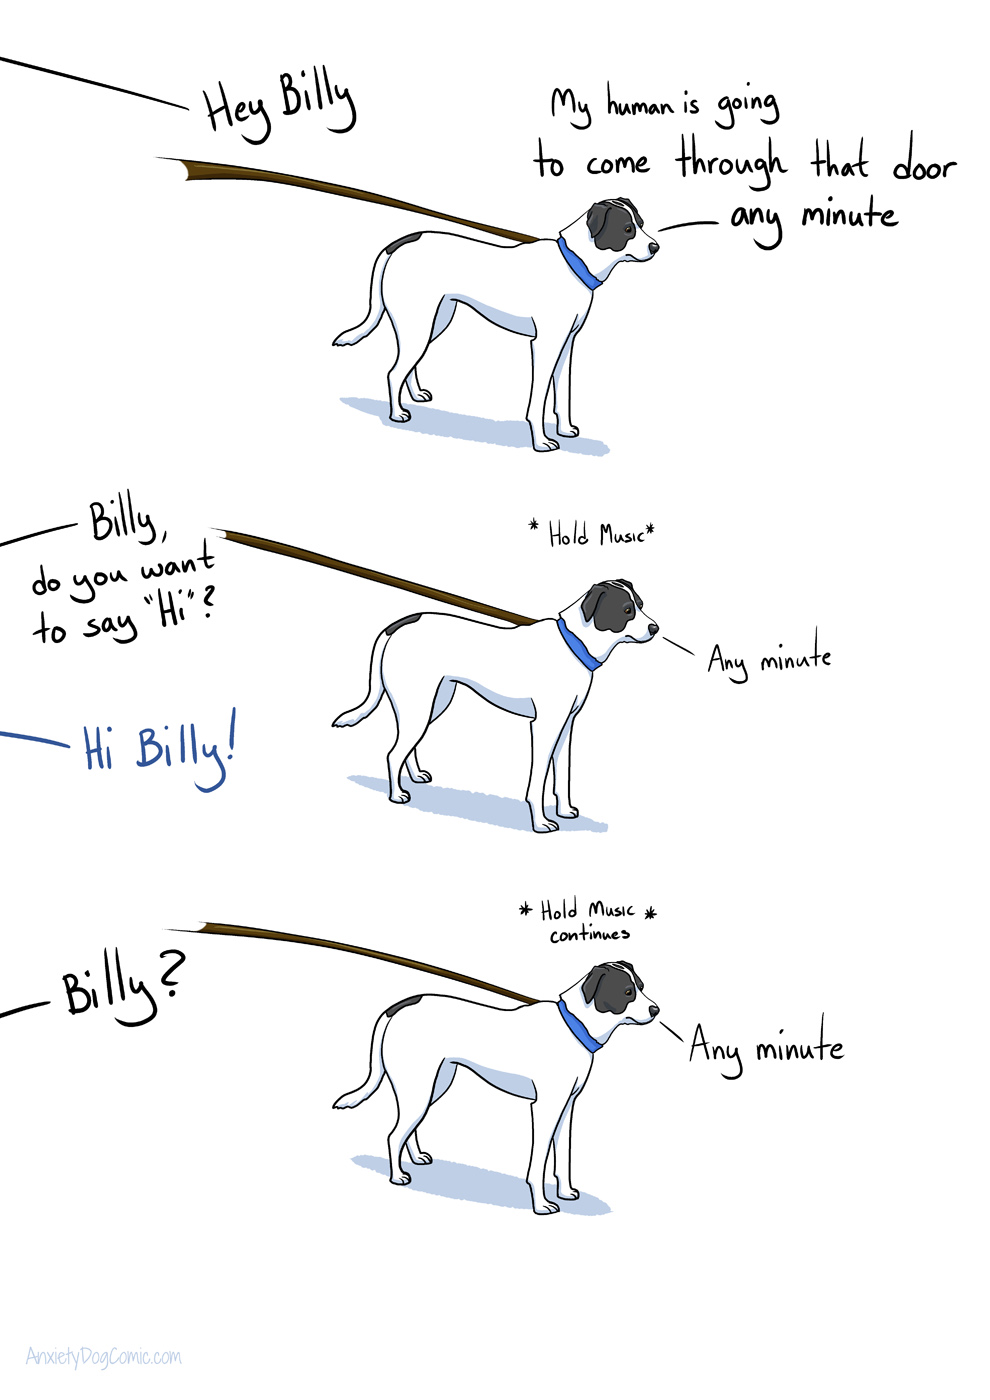 Hey Billy
My human is going
to come through that door
any minute
Billy,
do you want
to say "Hi"?
* Hold Music*
Any minute
Hi Billy!
* Hold Music *
continues
Billy?
Any minute
AnxietyDogComic.com